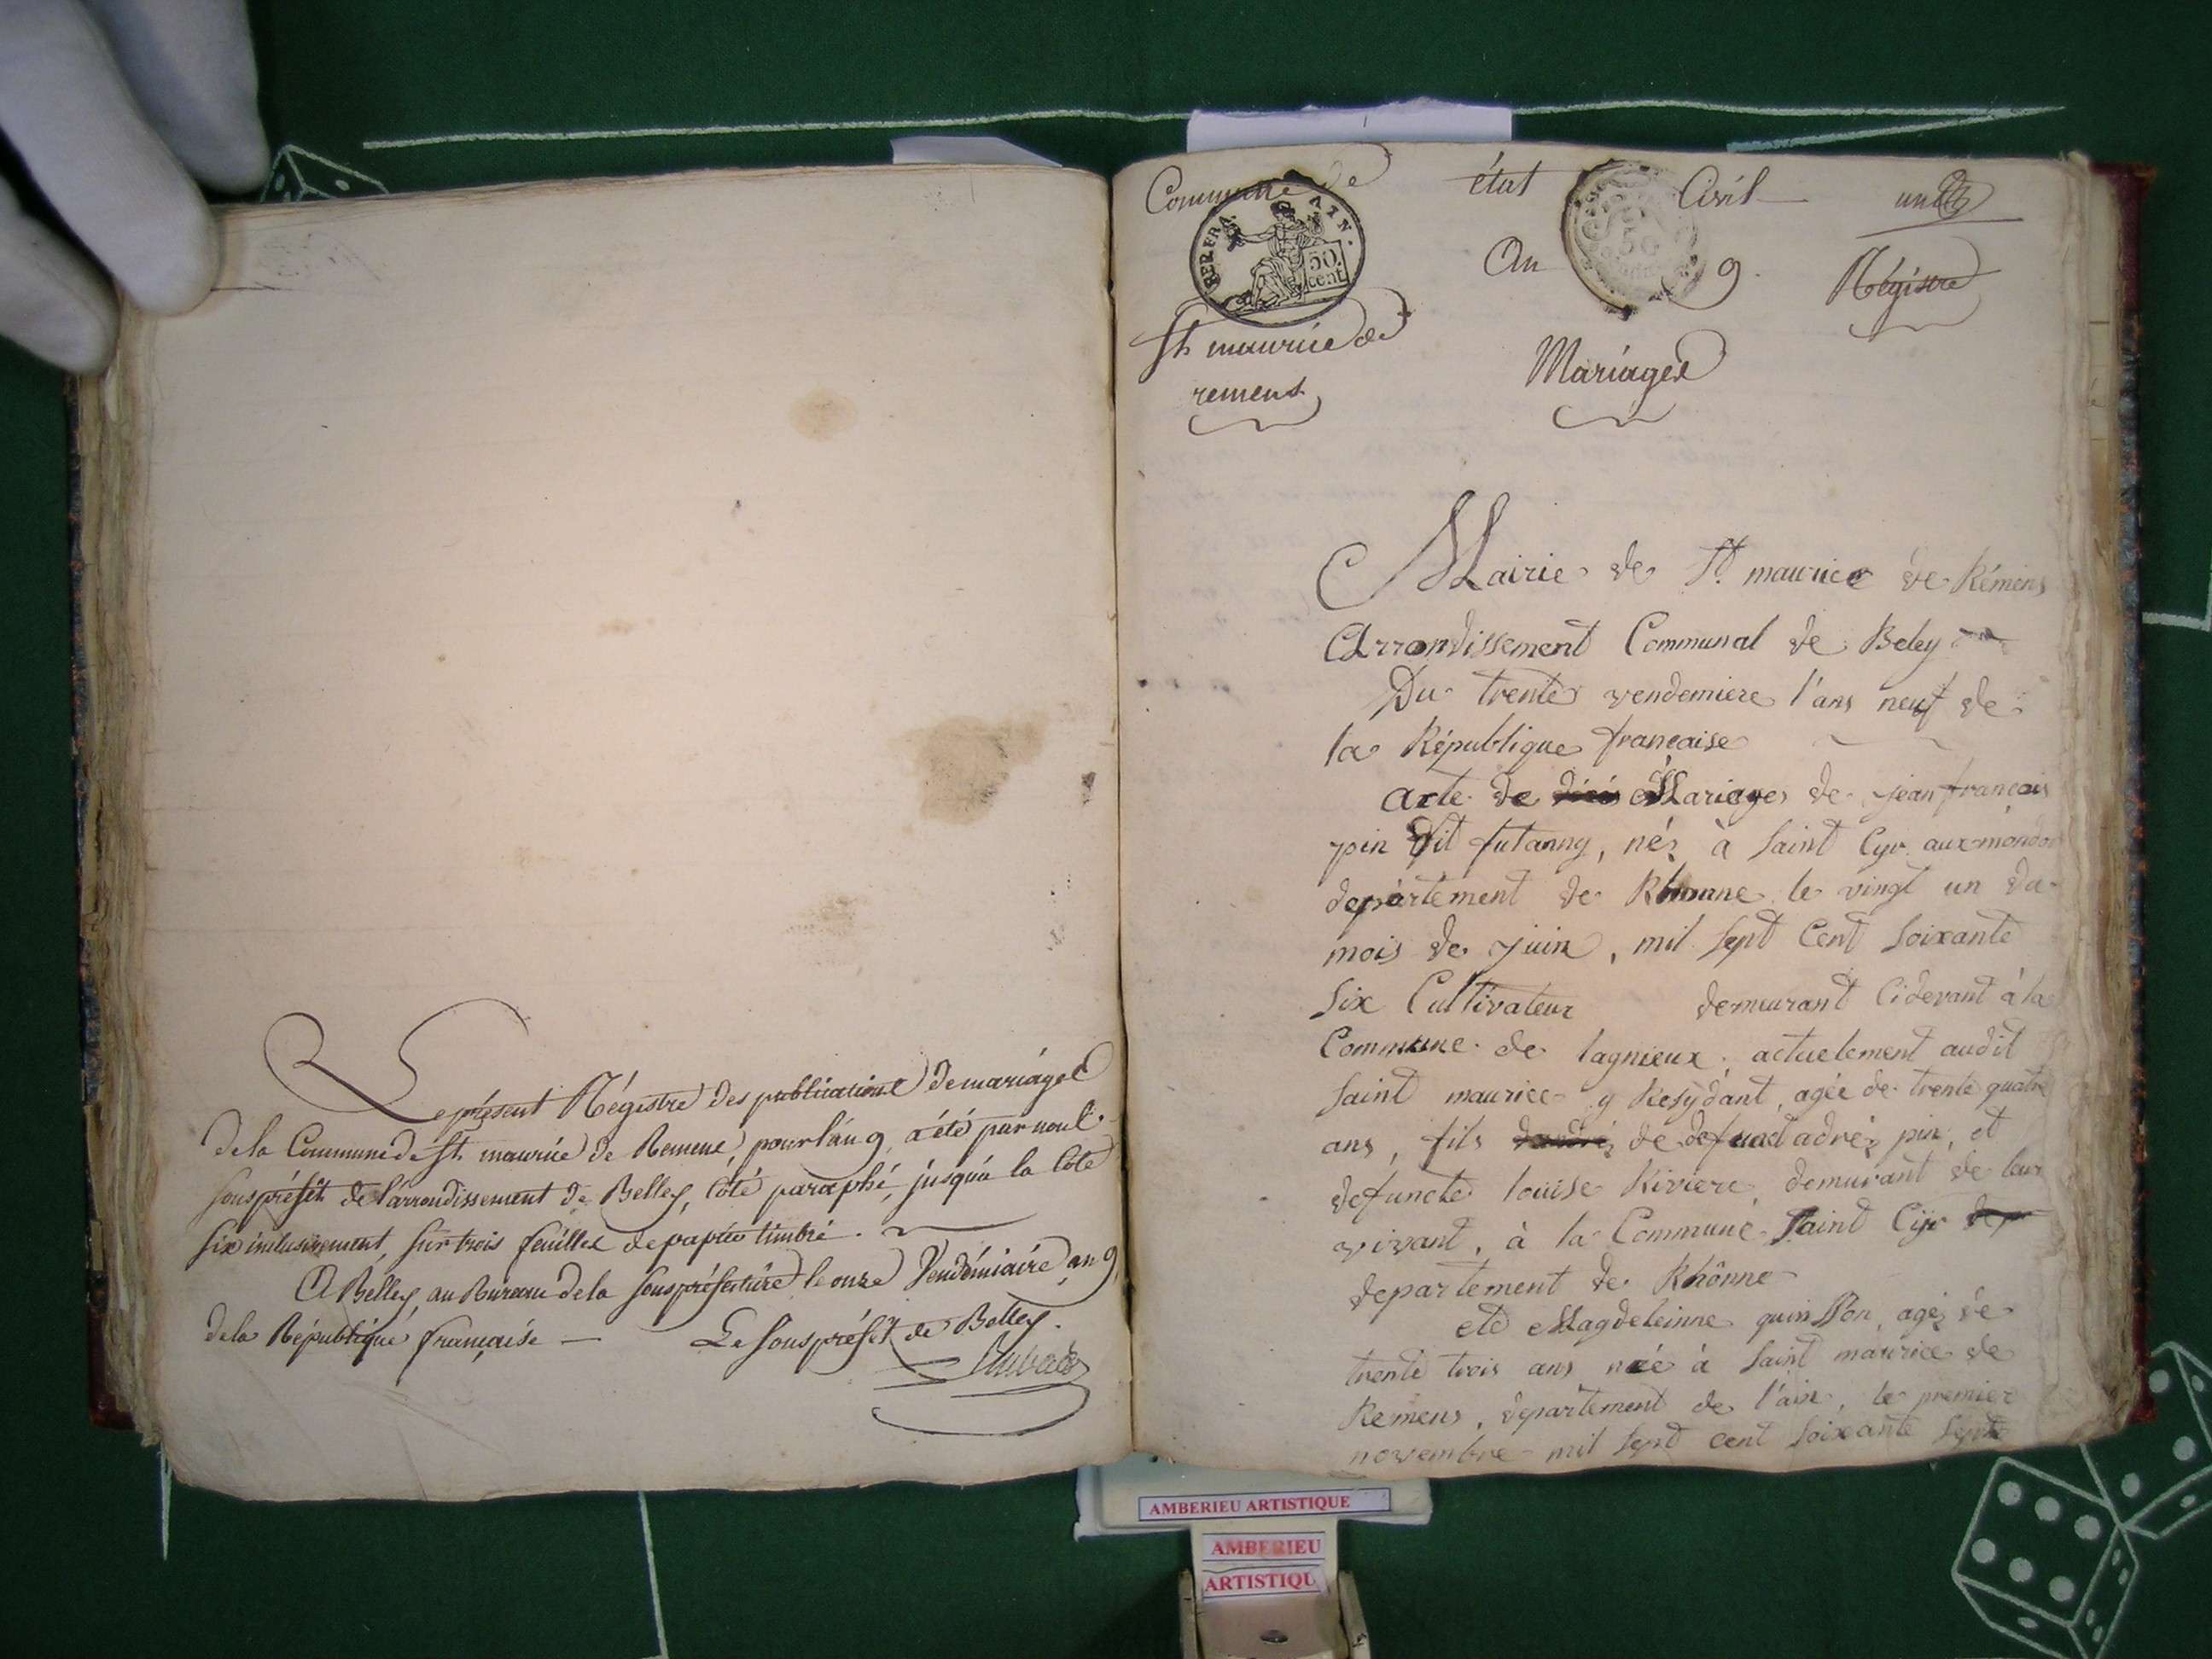 Le présent Régistre des publications de mariages
de la Commune de St. maurice de Remens, pour l'an 9, a été par nous
sous préfêt de l'arrondissement de Belley, côté paraphé, jusqu'à la Cote
six inclusivement, sur trois feuilles de papier timbré.
A Belley, au Bureau de la sous préfecture le onze Vendémiaire an 9
de la République française — Le sous préfêt de Belley.
Commune de état Civil un
REP. FRA. AIN.
50 cent
50
An 9. Régistre
St. maurice de
remens
Mariages
Mairie de St. maurice de Rémens
Arrondissement Communal de Beley
Du trente vendemiere l'ans neuf de
la République française
acte de Mariages de jean françois
pin dit futanny, néz à saint Cyr aux mondor
departement de Rhonne le vingt un du
mois de juin, mil sept Cent soixante
six Cultivateur demeurant Cidevant à la
Commune de lagnieux, actuelement audit
saint maurice y Resydant, agée de trente quatre
ans, fils de defunct adréz pin, et
defuncte louise Riviere, demurant de leur
vivant, à la Commune saint Cyr
departement de Rhônne
ete Magdeleinne quinson, agéz de
trente trois ans née à saint maurice de
Remens, departement de l'ain, le premier
novembre mil sept cent soixante sept
AMBERIEU ARTISTIQUE
AMBERIEU
ARTISTIQU